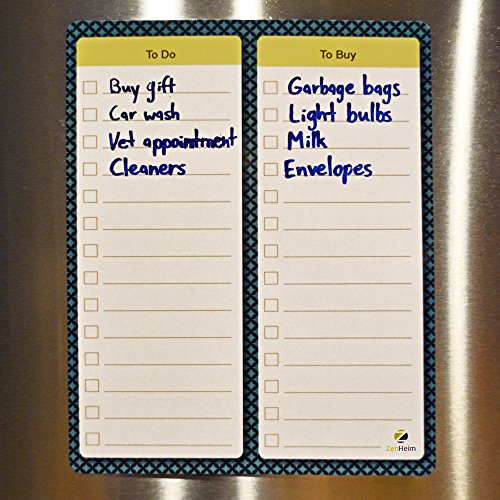 To Do
Buy gift
Car wash
Vet appointment
Cleaners
To Buy
Garbage bags
Light bulbs
Milk
Envelopes
ZenHeim